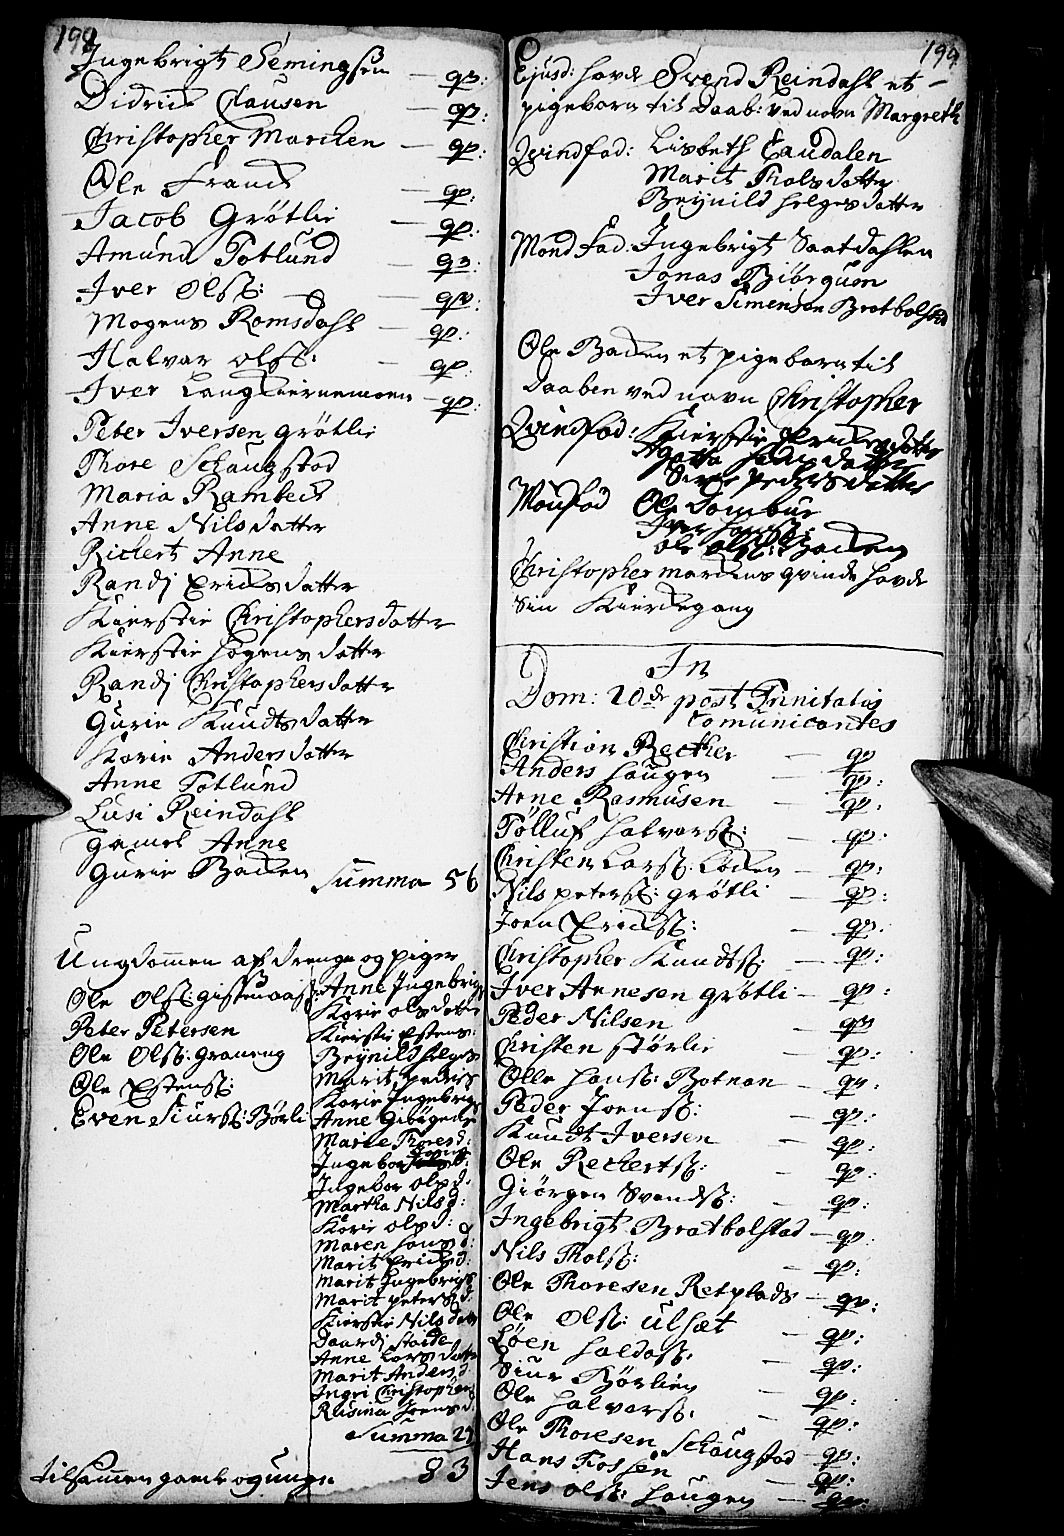 199
Ingebrigt Semingsen — qv:
Didrick Clausen — qv:
Christopher Marcken — qv:
Ole Franck — qv:
Jacob Grøtlie — qv:
Amund Totlund — qv:
Iver Olss: — qv:
Mogens Romsdahl — qv:
Halvar olss: — qv:
Iver Langkiernemoen — qv:
Peter Iversen grøtlie
Thore Schaugstad
Maria Rambeck
Anne Nils datter
Rickert Anne
Randj Ericks datter
Kierstie Christophersdatter
Kierstie Hogens datter
Randj Christophersdatter
Gurie Knudts datter
Korie Anders datter
Anne Totlund
Lusi Reindahl
gamel Anne
Gurie Baden
Summa 56
Ungdommen af drenge og piger
Ole Olss:
Peter Petersen
Ole Olss: graneng
Ole Estenss:
Even Siurss: Børli
Anne Ingebrigts
Korie ols datter
Kierstie Estens:
Brynild Helges
Marit peders
Korie Ingebrigs
Anne
Marie Thores d:
Ingebor
Ingebor olss d:
Martha Nils d:
Korie ols d:
Maren Hans d:
Marit Ericks d:
Marit Ingebrigts
Marit peters d:
Kierstie Nils datt
Daardj
Anne Lars datte
Marit Anders d:
Ingri Christophers
Rusina Joens d:
Summa 27
tilsammen gamle og unge 83
199
Ejusd: hafde Svend Reindahl et
pigebarn til daab: ved nafn Margreth
Qvindfad: Lisbeth Caudalen
Marit Thols datter
Brynild Helges datter
Mond Fad: Ingebrigt Saatdahlen
Jonas Biørgum
Iver Simensen Bratbolstad
Ole Baden et pigebarn til
daaben ved nafn Christopher
Qvindfad: Kierstie Ericks datter
Agatta datter
Siri peders datter
Monfad Ole Tombur
Iver Hanss:
Ole olss: Baden
Christopher marckens qvinde hafde
sin Kierckegang
In
Dom: 20de post Trinitatis
Comunicantes
Christian Recther — qv
Anders Haugen — qv:
Arne Rasmusen — qv:
Tølluf Halvorss: — qv:
Christen Larss: Løden — qv:
Nils peterss: grøtli — qv:
Joen Erickss: — qv:
Christopher Knudtss: — qv:
Iver Arnesen grøtli — qv:
Peder Nilsen — qv
Christen størlie — qv:
Olle Hanss: Botnan — qv:
Peder Joenss: — qv:
Knudt Iversen — qv:
Ole Reckertss: — qv:
Giørgen Svendss: — qv:
Ingebrigt Bratbolstad — qv:
Nils Tholss: — qv:
Ole Thoresen Retplads — qv:
Ole Olss: Ulset — qv:
Løen Haldorss: — qv:
Siur Børlien — qv:
Ole Halvorss: — qv:
Ole Thoresen Schaugstad — qv:
Hans Fossen — qv:
Jens olss: Haugen — qv: